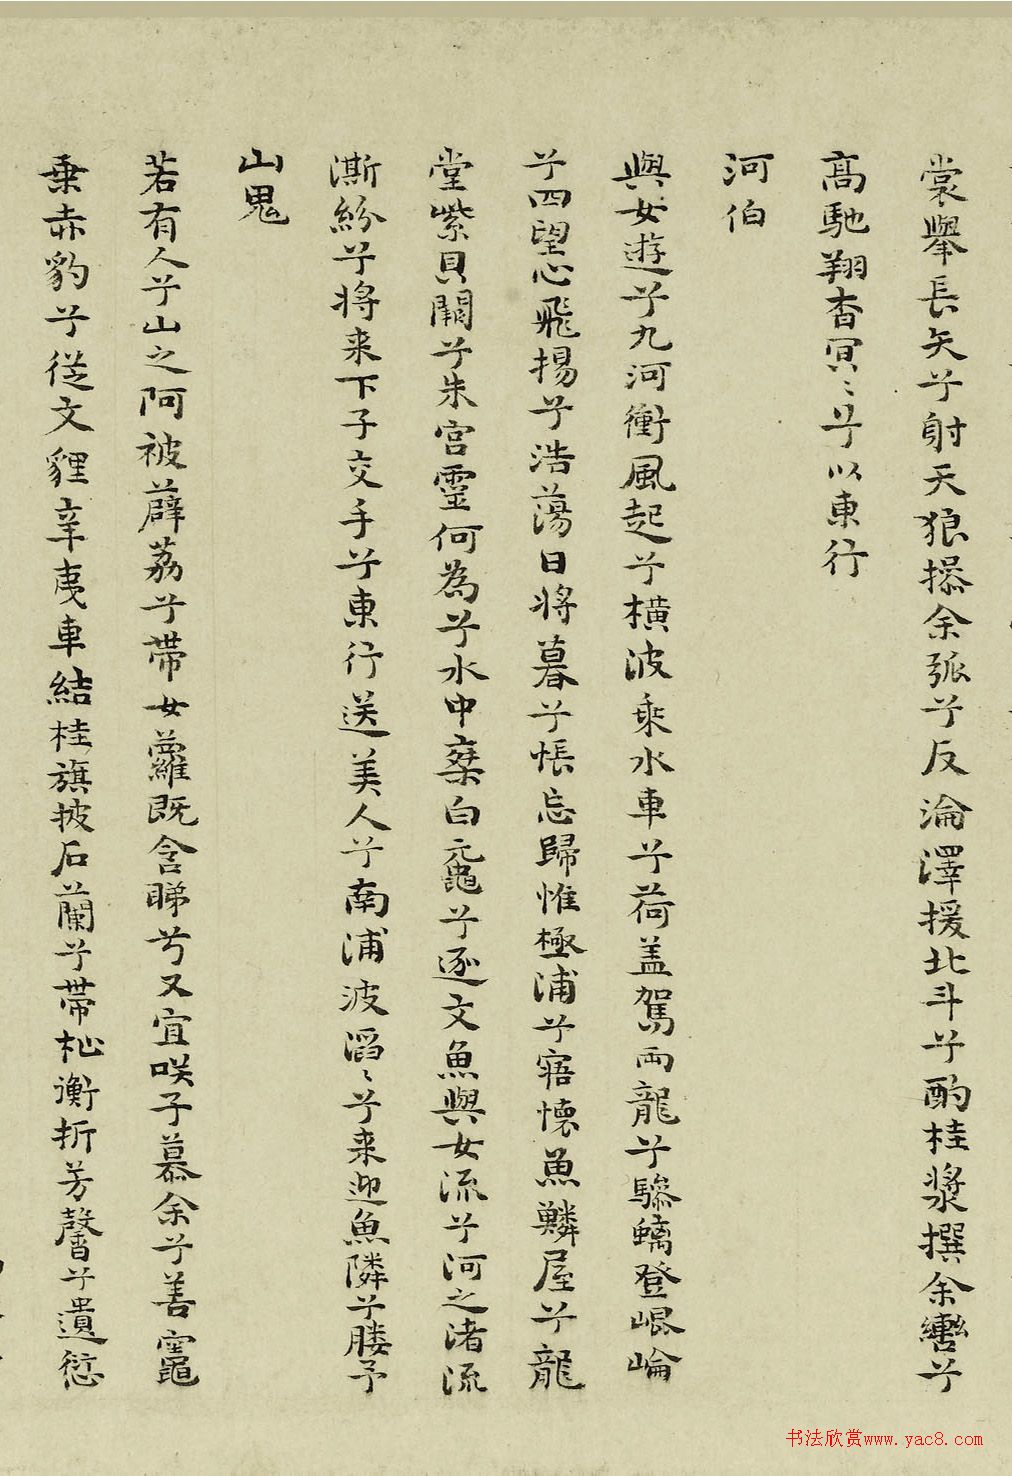 裳舉長矢兮射天狼操余弧兮反淪澤援北斗兮酌桂漿撰余轡兮
高馳翔杳冥〻兮以東行
河伯
與女遊兮九河衝風起兮橫波乘水車兮荷盖駕兩龍兮驂螭登崐崘
兮四望心飛揚兮浩蕩日將暮兮悵忘歸惟極浦兮寤懷魚鱗屋兮龍
堂紫貝闕兮朱宮靈何為兮水中椉白黿兮逐文魚與女流兮河之渚流
澌紛兮將来下子交手兮東行送美人兮南浦波滔〻兮来迎魚隣兮媵予
山鬼
若有人兮山之阿被薜荔兮帶女蘿既含睇兮又宜咲子慕余兮善
乗赤豹兮從文貍辛夷車結桂旗披石蘭兮帶杜衡折芳馨兮遺
书法欣赏www.yac8.com